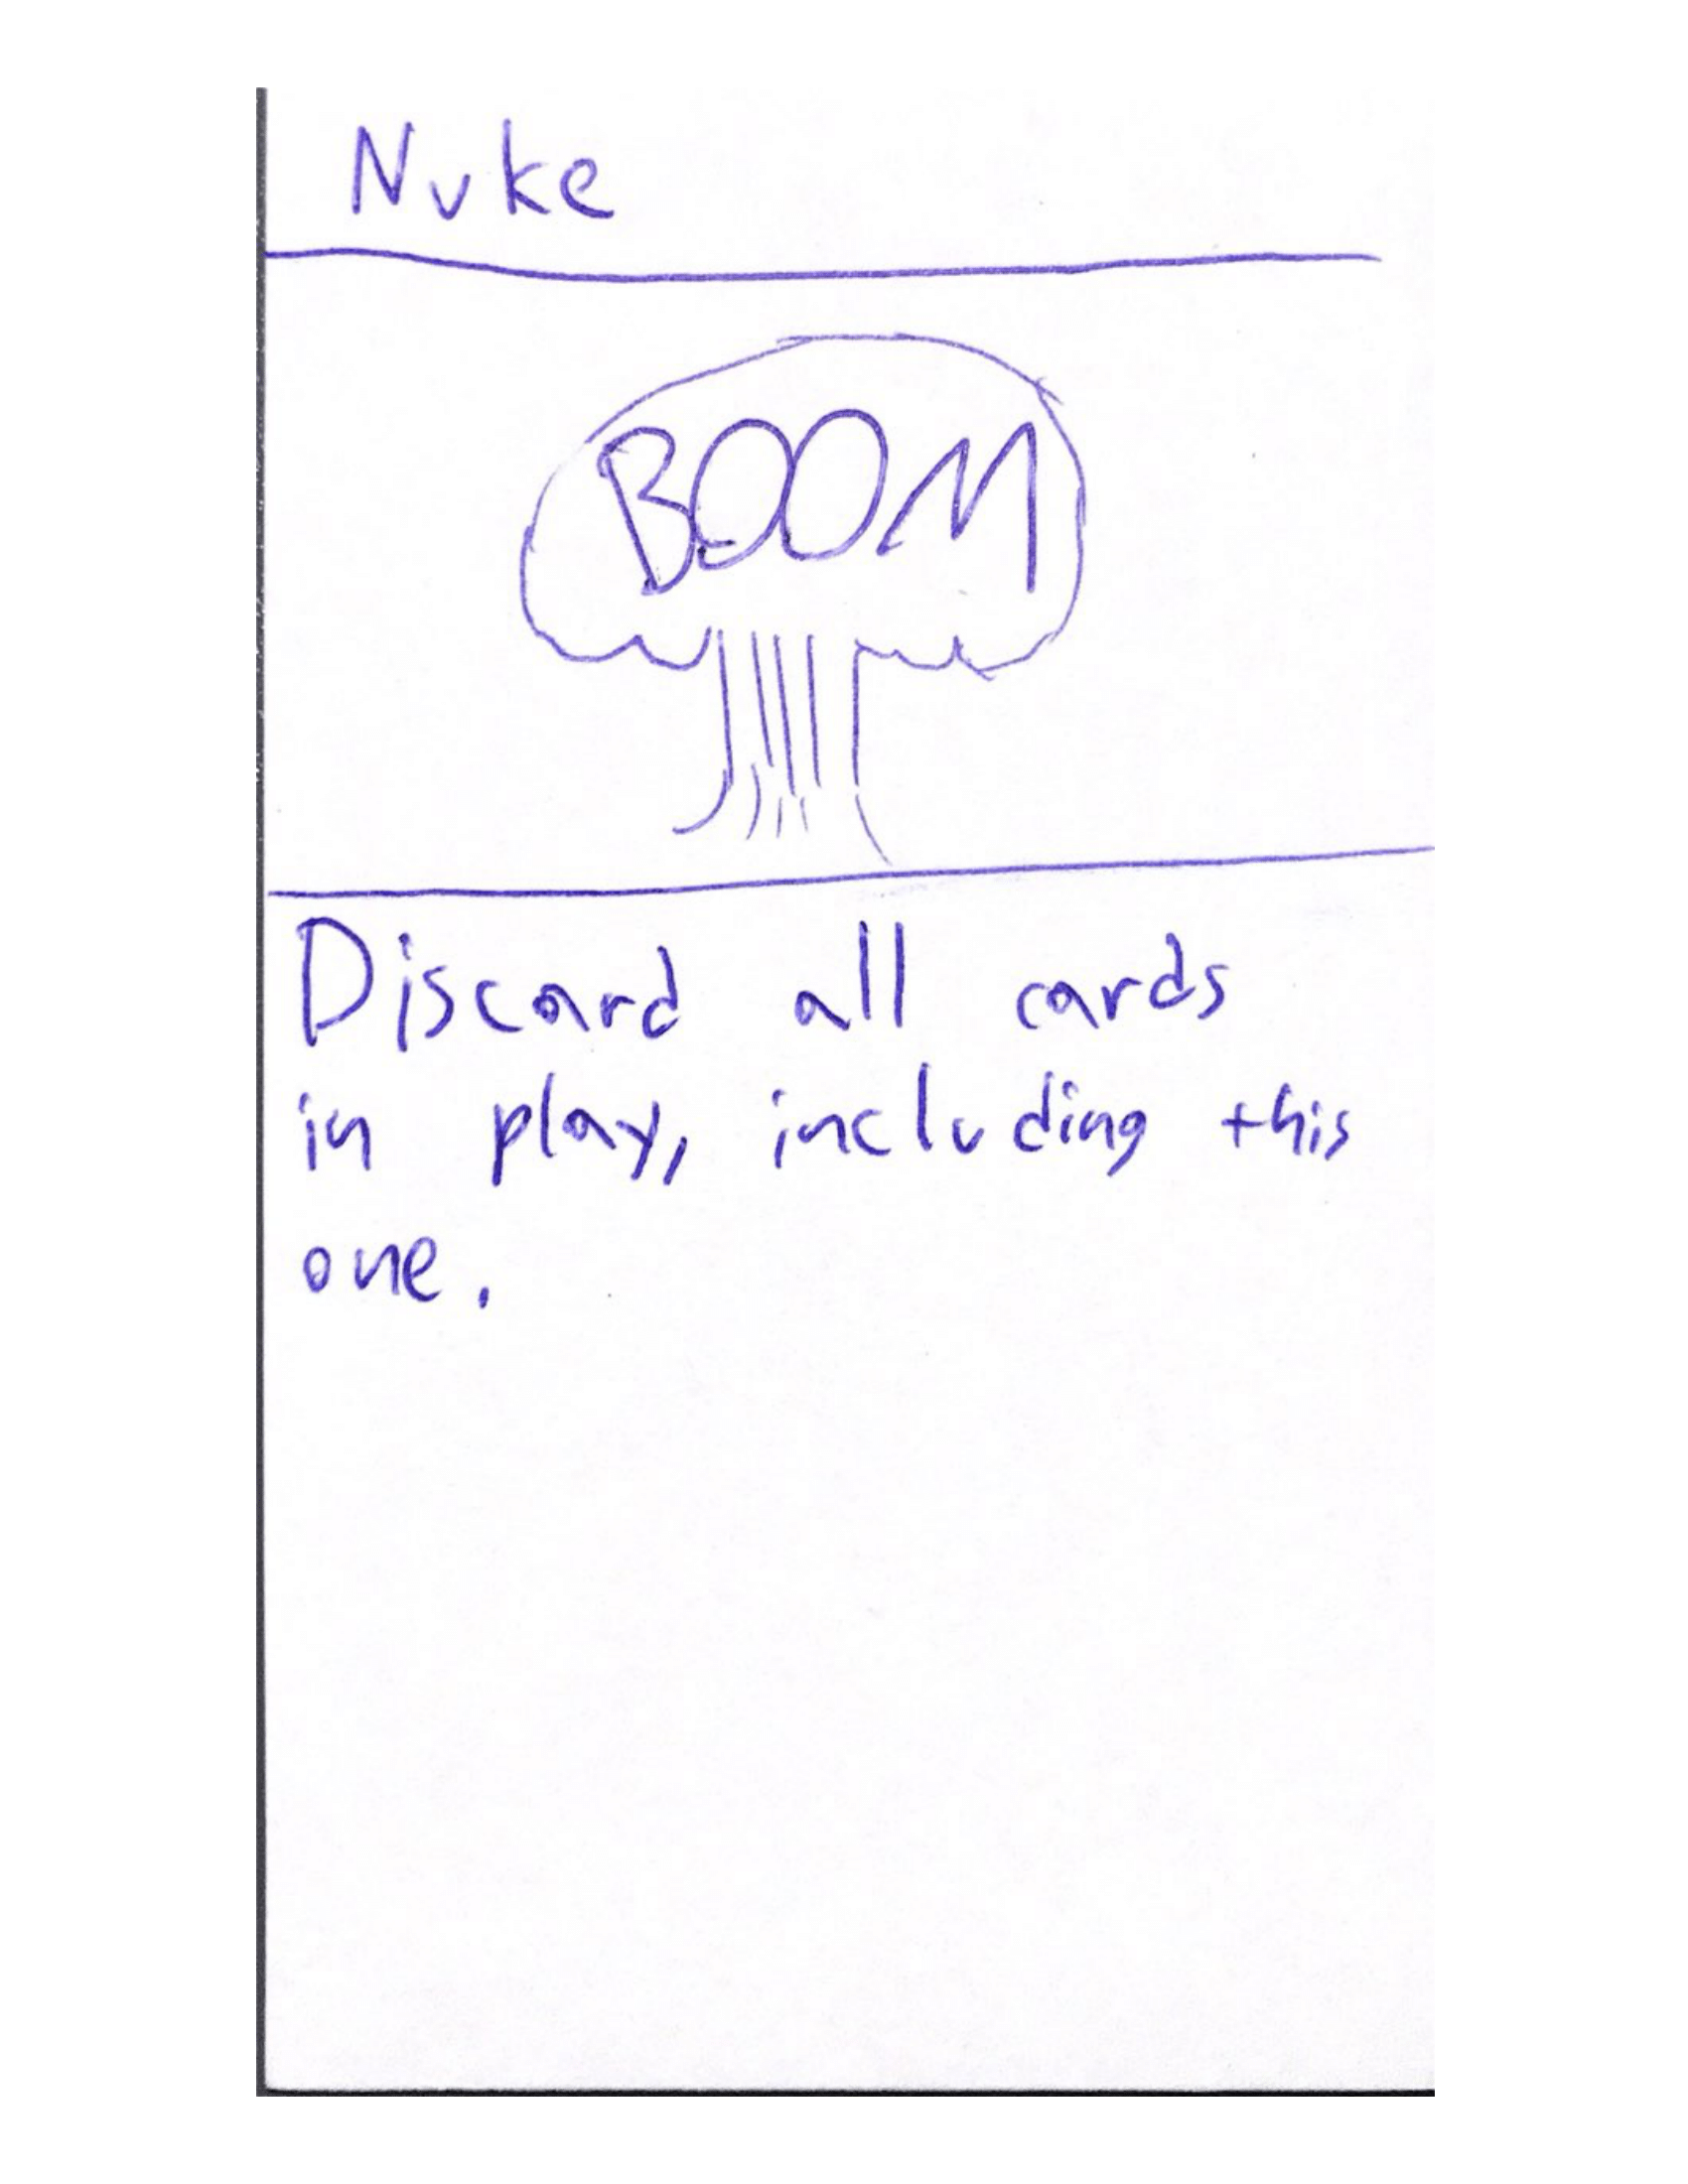 Nuke
BOOM
Discard all cards
in play, including this
one.